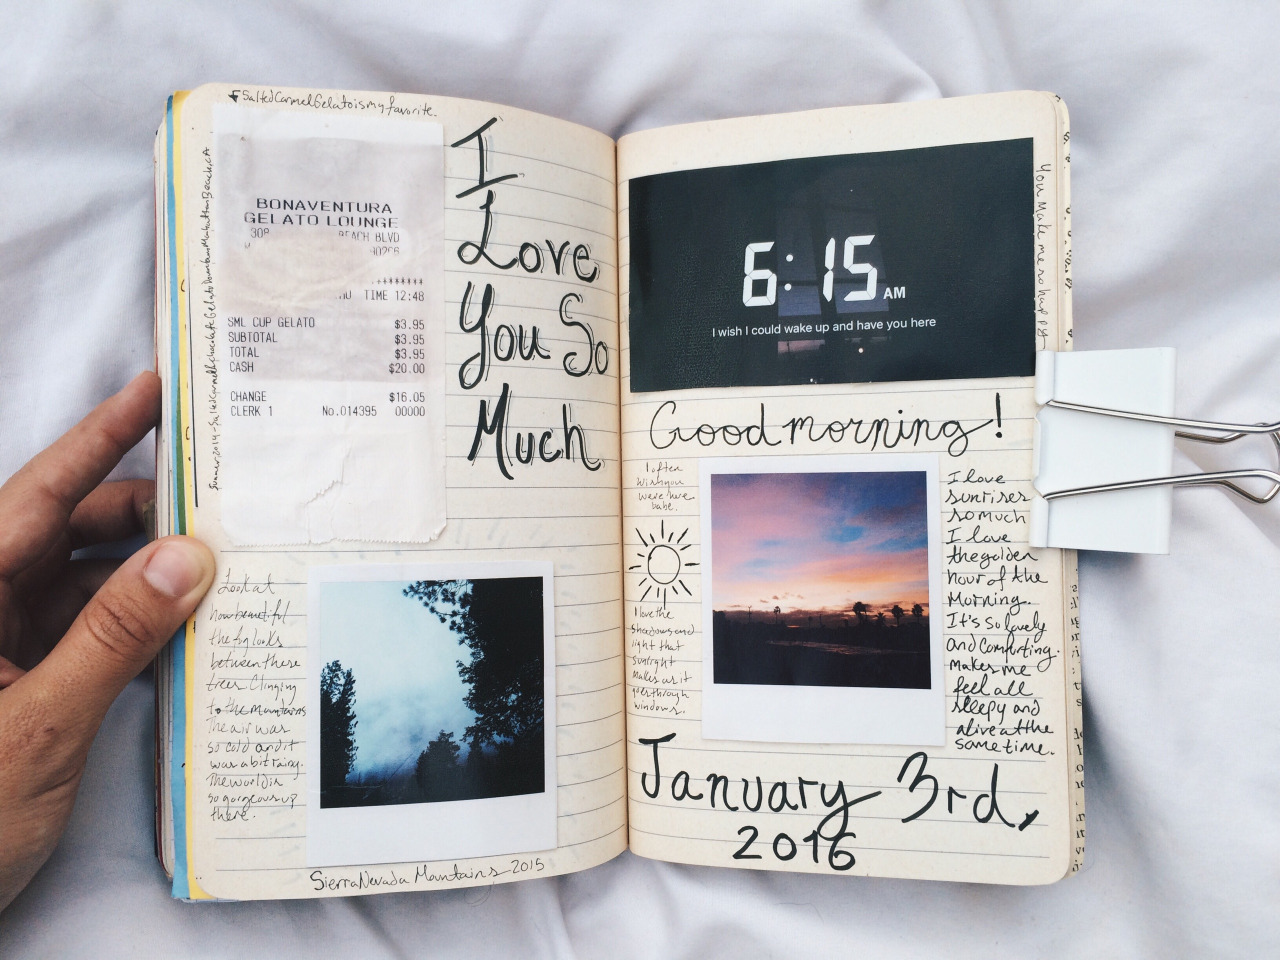 Salted Carmel Gelato is my favorite.
BONAVENTURA
GELATO LOUNGE
308 BEACH BLVD
TIME 12:48
SML CUP GELATO $3.95
SUBTOTAL $3.95
TOTAL $3.95
CASH $20.00
CHANGE $16.05
CLERK 1 No.014395 00000
Summer 2014 - Salted Carmel & chocolate Gelato Downtown Manhattan Beach, CA
I
Love
You So
Much
Look at
how beautiful
the fog looks
between these
trees. Clinging
to the mountains
The air was
so cold and it
was a bit rainy.
The world is
so gorgeous up
there.
Sierra Nevada Mountains 2015
6:15 AM
I wish I could wake up and have you here
You Make me so happy
Good morning!
I often
wish you
were here
babe.
I love the
shadows and
light that
sunlight
makes as it
goes through
windows.
I love
sunrises
so much
I love
the golden
hour of the
Morning.
It's so lovely
and comforting.
Makes me
feel all
sleepy and
alive at the
same time.
January 3rd,
2016